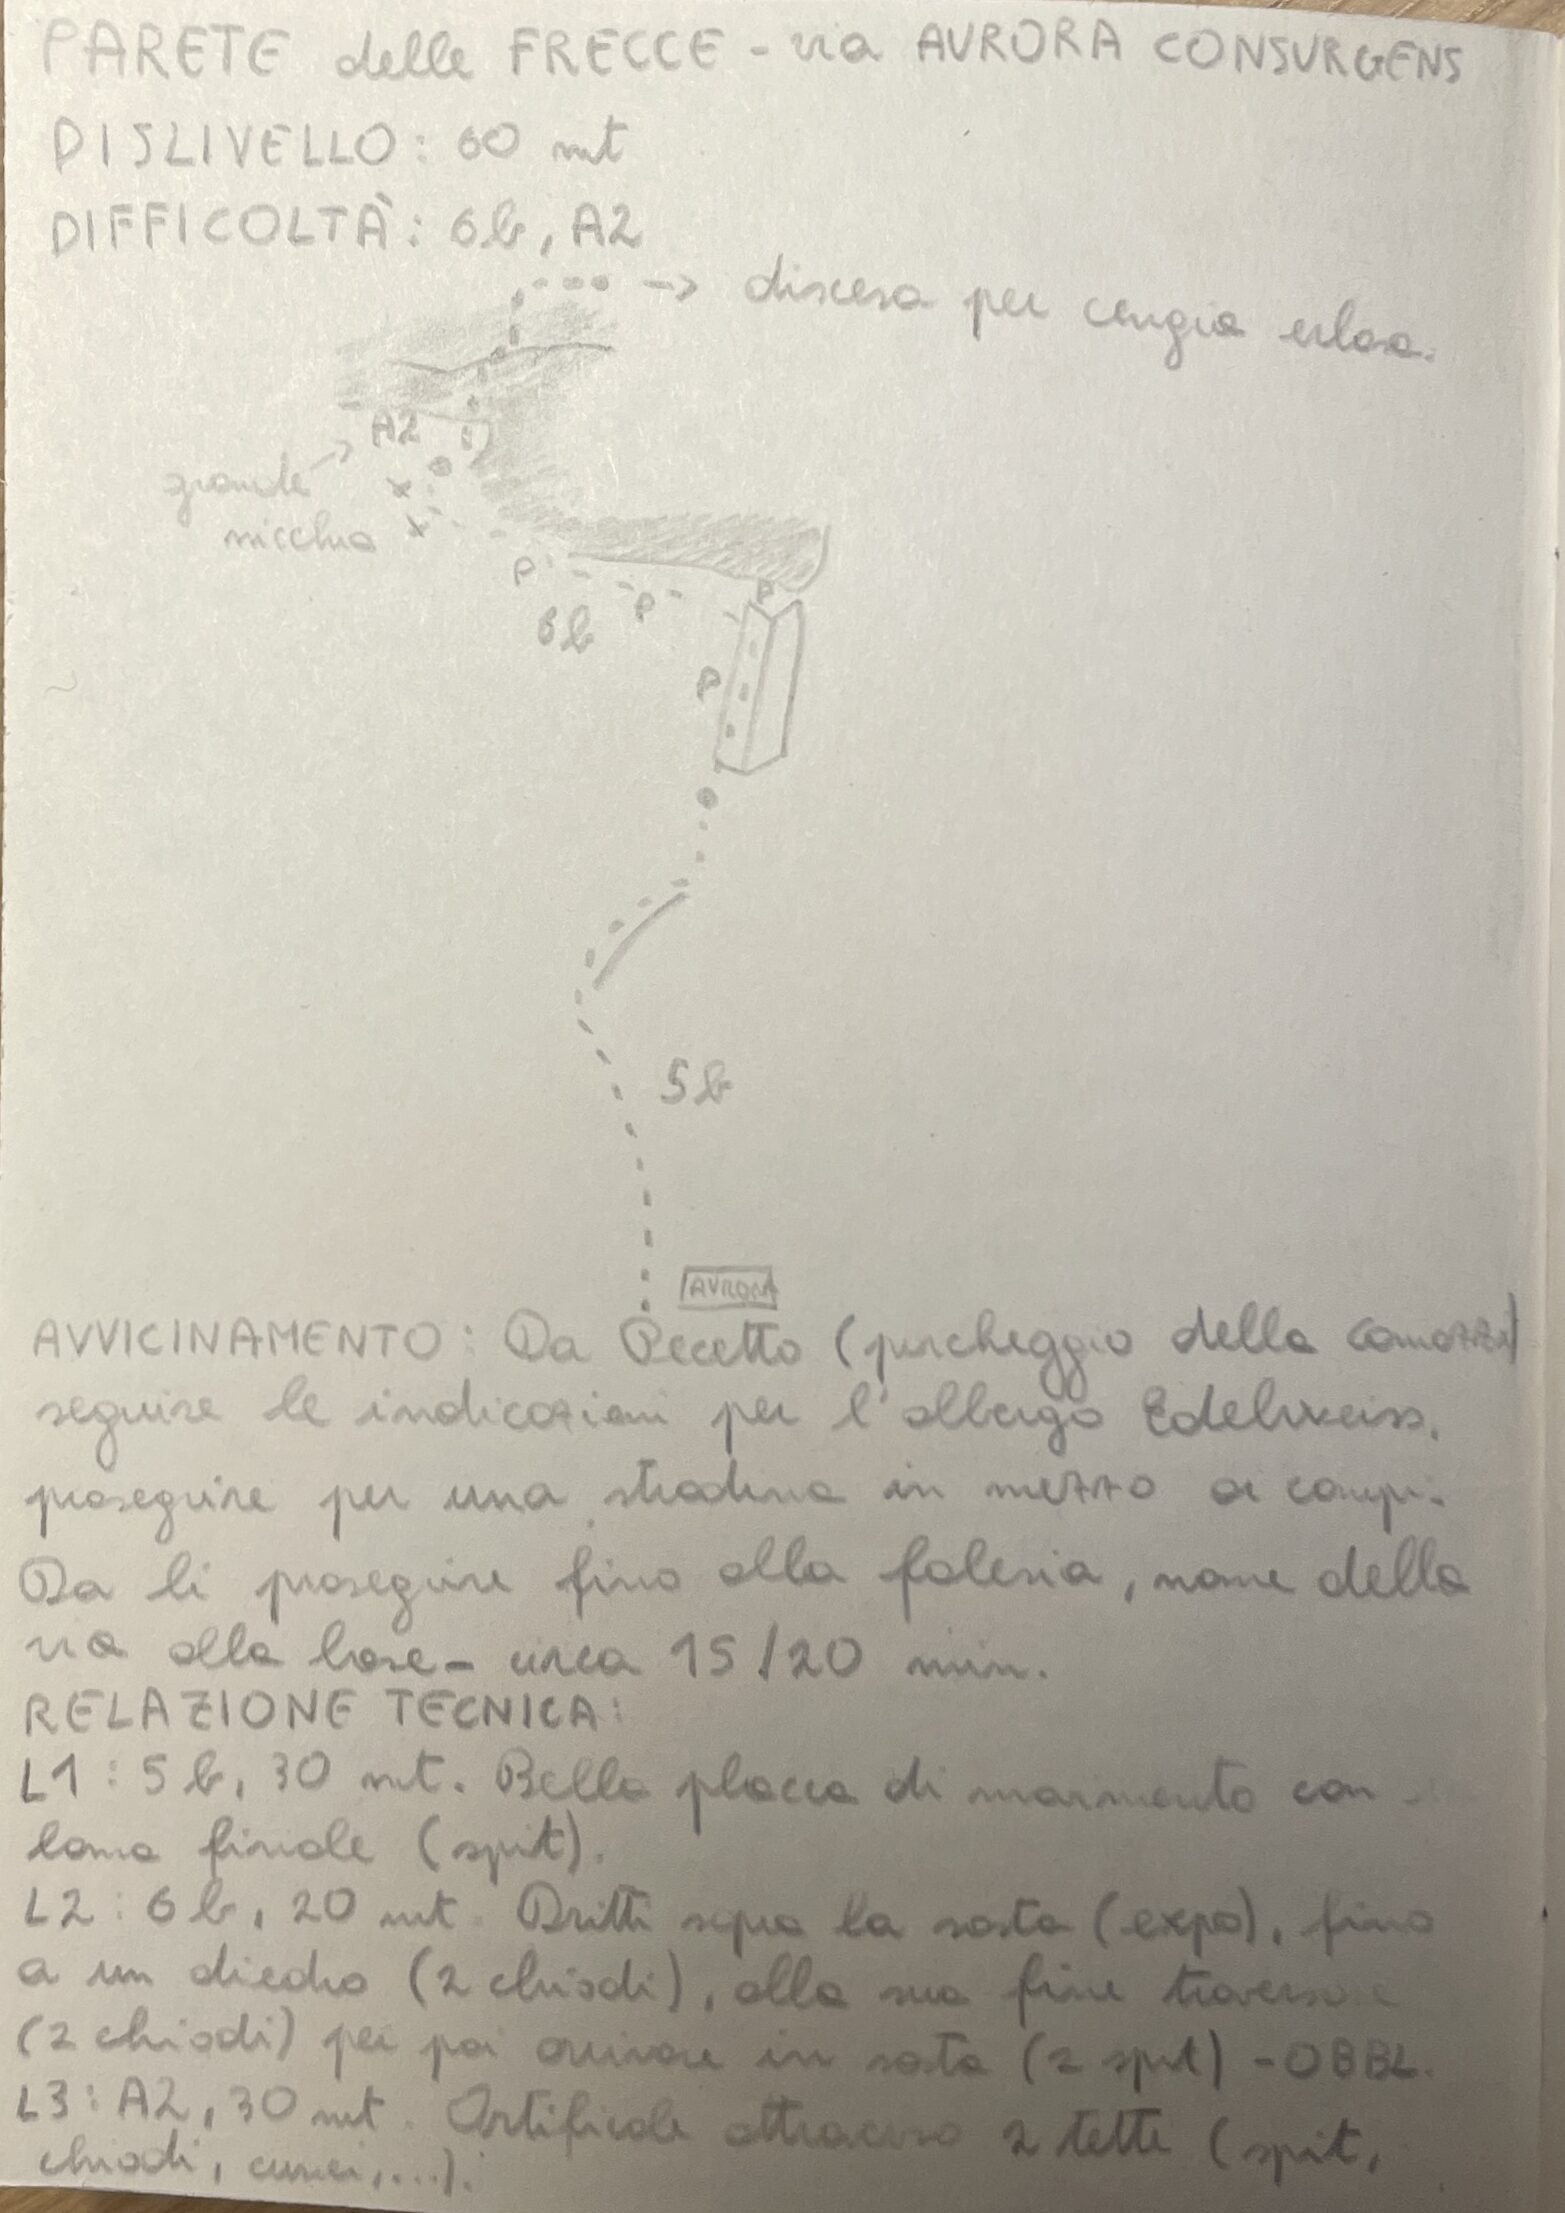 PARETE delle FRECCE - via AURORA CONSURGENS
DISLIVELLO: 60 mt
DIFFICOLTÀ: 6b, A2
-> discesa per cengia erbosa.
A2
grande ->
nicchia
x
x
P
P
P
6b
P
5b
AURORA
AVVICINAMENTO: Da Pecetto (parcheggio della camozza)
seguire le indicazioni per l'albergo Edelweiss,
proseguire per una stradina in mezzo ai campi.
Da lì proseguire fino alla falesia, nome della
via alla base - circa 15/20 min.
RELAZIONE TECNICA:
L1: 5b, 30 mt. Bella placca di movimento con
lama finale (spit).
L2: 6b, 20 mt. Dritti sopra la sosta (expo), fino
a un diedro (2 chiodi), alla sua fine traverso
(2 chiodi) per poi arrivare in sosta (2 spit) - OBBL.
L3: A2, 30 mt. Artificiale attraverso 2 tetti (spit,
chiodi, cunei,...).